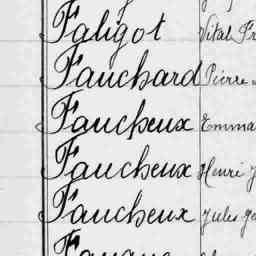 Faligot Vital Fr
Fauchard Pierre
Faucheux Emma
Faucheux Henri J
Faucheux Jules Ge